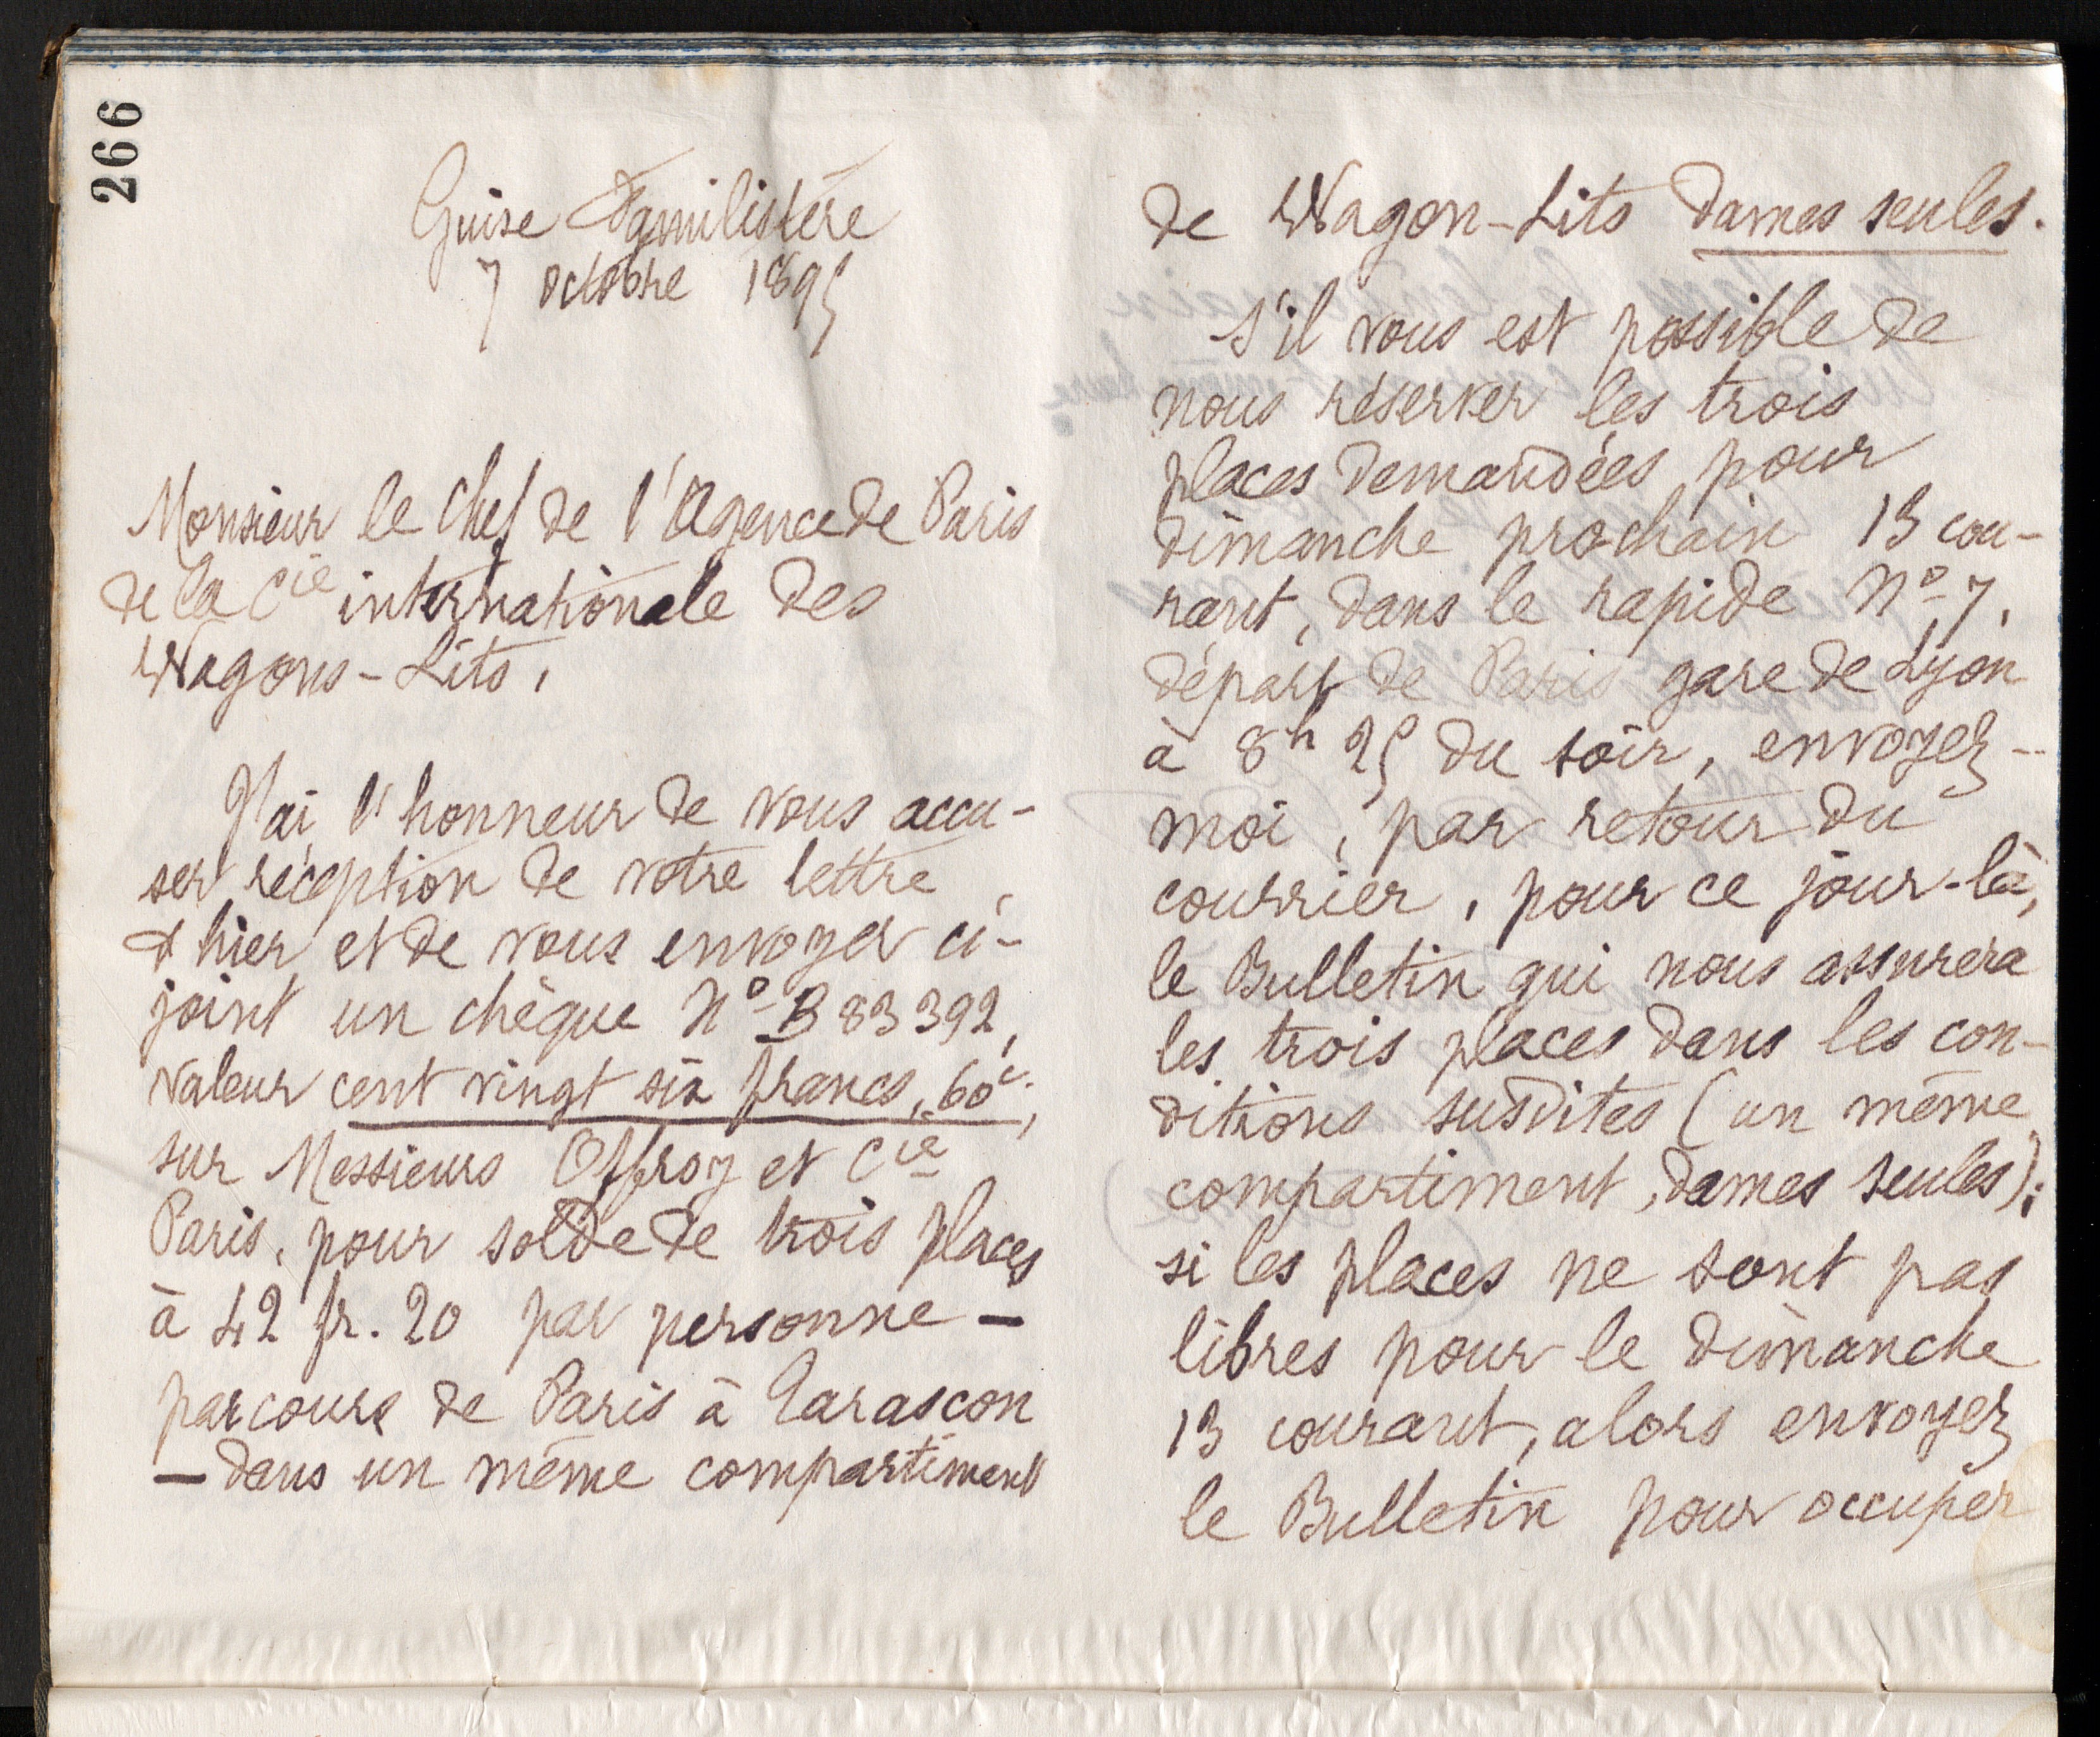 266
Guise Familistère
7 octobre 1895
Monsieur le Chef de l'Agence de Paris
de la Cie internationale des
Wagons-Lits,
J'ai l'honneur de vous accu-
ser réception de votre lettre
d'hier et de vous envoyer ci-
joint un chèque No B 83392,
valeur cent vingt six francs, 60c.,
sur Messieurs Offroy et Cie
Paris, pour solde de trois places
à 42 fr. 20 par personne —
parcours de Paris à Tarascon
— dans un même compartiment
de Wagon-Lits dames seules.
S'il vous est possible de
nous réserver les trois
places demandées pour
dimanche prochain 13 cou-
rant, dans le rapide No 7,
départ de Paris gare de Lyon
à 8h 25 du soir, envoyez-
moi, par retour du
courrier, pour ce jour-là,
le Bulletin qui nous assurera
les trois places dans les con-
ditions susdites (un même
compartiment, dames seules);
si les places ne sont pas
libres pour le dimanche
13 courant, alors envoyez
le Bulletin pour occuper